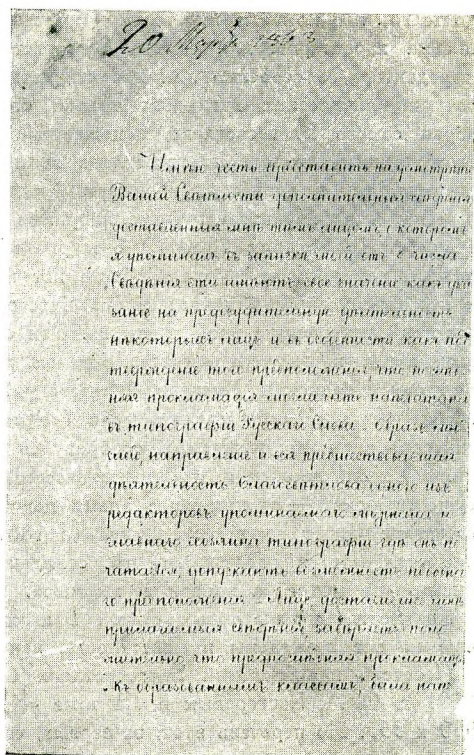 20 Марта 1863
Имею честь представить на усмотрѣніе
Вашей Свѣтлости дополнительныя свѣденія
доставленныя мнѣ тѣмъ лицомъ, о которомъ
я упоминалъ въ запискѣ моей отъ 8 числа
Свѣдѣнія эти имѣютъ свое значеніе какъ ука
заніе на предосудительную дѣятельность
нѣкоторыхъ лицъ и въ особенности какъ под
твержденіе того предположенія, что
прокламація могла быть напечатана
въ типографіи Русскаго Слова. Образъ мы
слей, направленіе и вся предшествовавшая
дѣятельность Благосвѣтлова одного изъ
редакторовъ упоминаемаго журнала и
главнаго хозяина типографіи гдѣ онъ пе
чатается, допускаютъ возможность
го предположенія. Лице доставившее мнѣ
прилагаемыя свѣденія завѣряетъ поло
жительно, что прокламація
"Къ образованнымъ классамъ", была нап